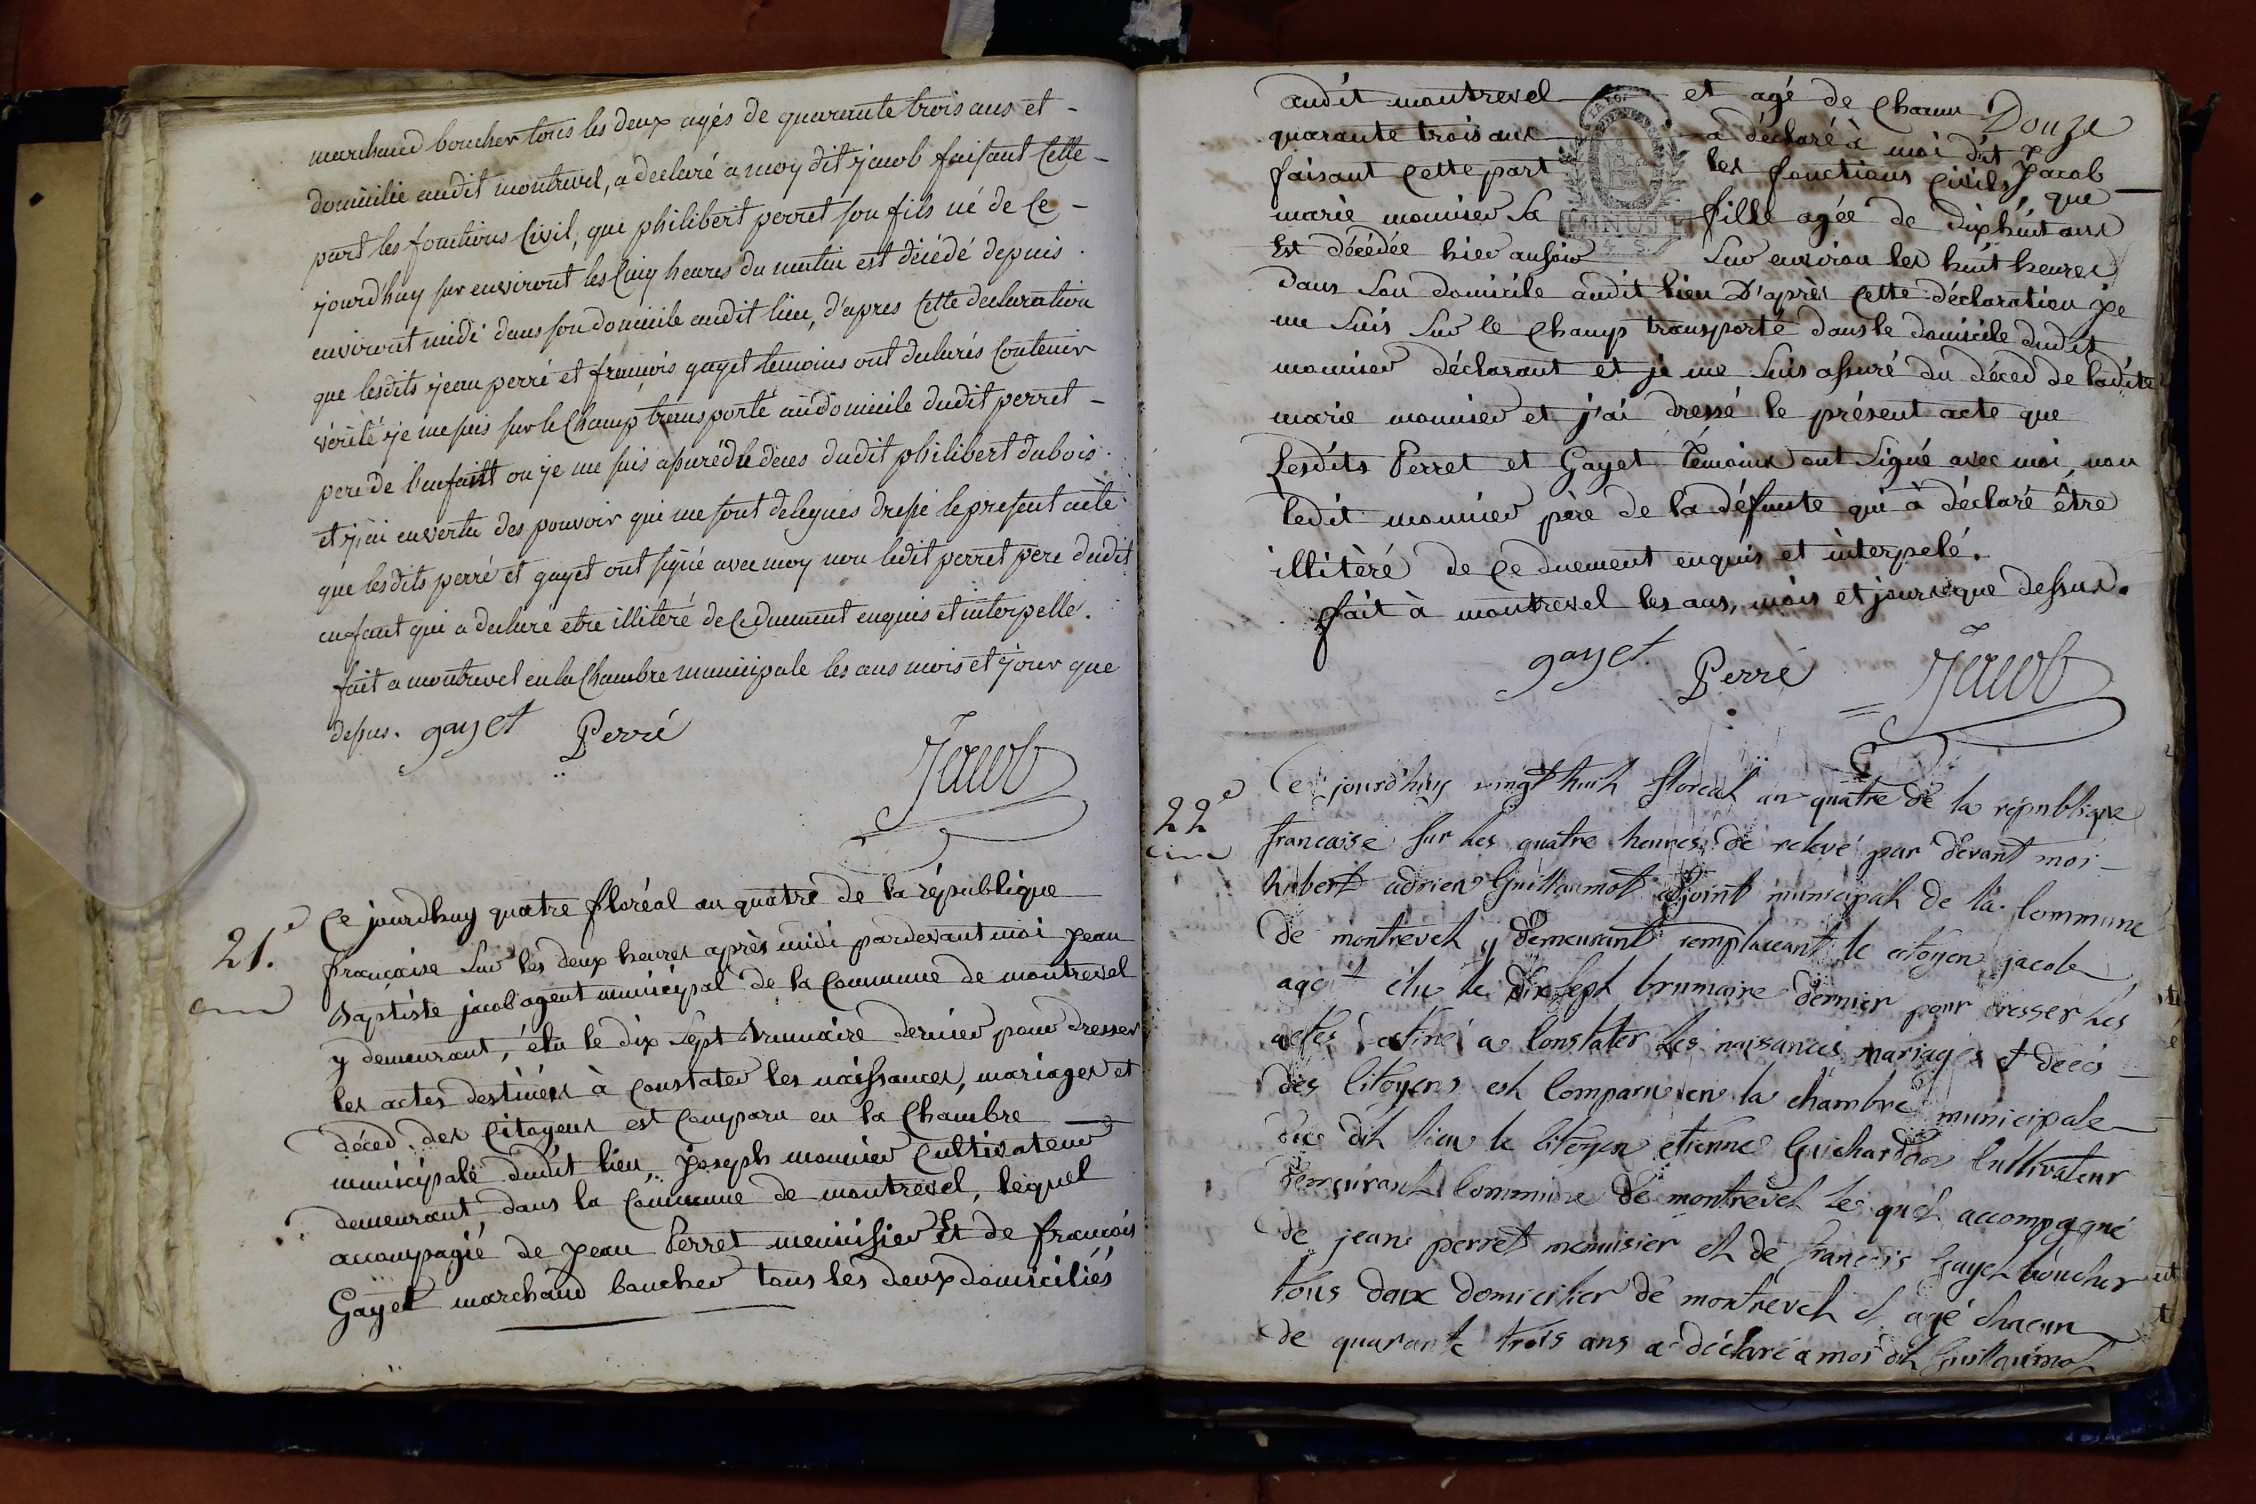 marchand boucher tous les deux agés de quarante trois ans et -
domicilié audit montrevel, a declaré a moy dit jacob faisant Cette -
part les fonctions Civil, que philibert perret son fils né de Ce -
jourd'huy sur environt les Cinq heures du matin est décédé depuis
environt midi dans son domicile audit lieu, d'apres Cette declaration
que lesdits jean perré et francois gayet temoins ont declarés Contenir
vérité je me suis sur le Champ transporté au domicile dudit perret -
pere de l'enfant ou je me suis assuré du deces dudit philibert dubois.
et j'ai en vertu des pouvoir qui me sont delegués dressé le present acte
que lesdits perré et gayet ont signé avec moy non ledit perret pere dudit
enfant qui a declare etre illitéré de Ce duement enquis et interpellé.
fait a montrevel en la Chambre municipale les ans mois et jour que
dessus. gayet Perré
Jacob
21.e
Ce jourdhuy quatre floréal an quatre de la république
française Sur les deux heures après midi pardevant moi jean
Baptiste jacob agent municipal de la Commune de montrevel
y demeurant, élu le dix Sept Brumaire dernier pour dresser
les actes destinées à Constater les naissances, mariages et
déced des Citoyens est Comparu en la Chambre
municipale dudit lieu, joseph monnier Cultivateur
demeurant dans la Commune de montrevel, lequel
accompagié de jean Perret menuisier Et de francois
Gayet marchand boucher tous les deux domiciliés
Douze
audit montrevel et agé de Chacun
quarante trois ans a déclaré à moi dit Jacob
faisant Cette part les fonctions Civils, que
marie monnier Sa fille agée de dixhuit ans
Est décédée hier ausoir Sur environ les huit heures
Dans Son domicile audit lieu D'après Cette déclaration je
me Suis Sur le Champ transporté dans le domicile dudit
monnier déclarant et je me Suis assuré du déced de ladite
marie monnier et j'ai dressé le présent acte que
Lesdits Perret et Gayet Temoins ont Signé avec moi, non
ledit monnier père de la défunte qui à déclaré être
illitèré de Ce duement enquis et interpelé.
fait à montrevel les ans, mois et jours que dessus.
gayet Perré Jacob
22e
Ce jourd'huy vingt huit floreal an quatre de la république
francaise Sur les quatre heures de relevé par devant moi -
hubert adrien Guillaumot adjoint municipal de la Commune
de montrevel y demeurant remplaceant le citoyen jacob
agent élu le dix sept brumaire dernier pour dresser les
actes a Constater les naisances mariages et déces
des Citoyens est Comparu en la chambre municipale
du dit lieu le Citoyen etienne Guichardon Cultivateur
demeurant Commune de montrevel le quel accompagné
de jean perret menuisier et de francois Gayet boucher
tous deux domicilier de montrevel et agé chacun
de quarante trois ans a déclaré a moi dit Guillaumot